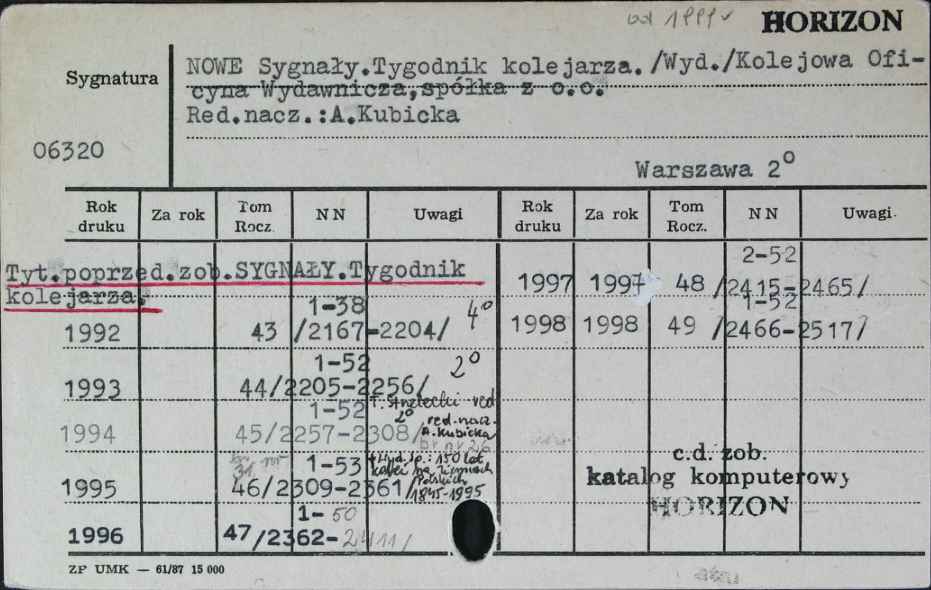 od 1999 HORIZON
Sygnatura
NOWE Sygnały.Tygodnik kolejarza./Wyd./Kolejowa Ofi-
cyna Wydawnicza,spółka z o.o.
Red.nacz.:A.Kubicka
06320
Warszawa 2°
Rok druku Za rok Tom Rocz. N N Uwagi Rok druku Za rok Tom Rocz. N N Uwagi
Tyt.poprzed.zob.SYGNAŁY.Tygodnik
kolejarza.
1992 43 1-38 /2167-2204/ 4°
1993 44 1-52 /2205-2256/ 2°
T. Strzelecki red
1994 45 1-52 /2257-2308/ 2° red.nacz. A.Kubicka
br nr 26
1995 46 1-53 /2309-2361/ +Wyd.sp.: 150 lat kolei na ziemiach Polskich 1845-1995
1996 47 1-50 /2362-2411/
1997 1997 48 2-52 /2415-2465/
1998 1998 49 1-52 /2466-2517/
c.d. zob.
katalog komputerowy
HORIZON
ZP UMK — 61/87 15 000